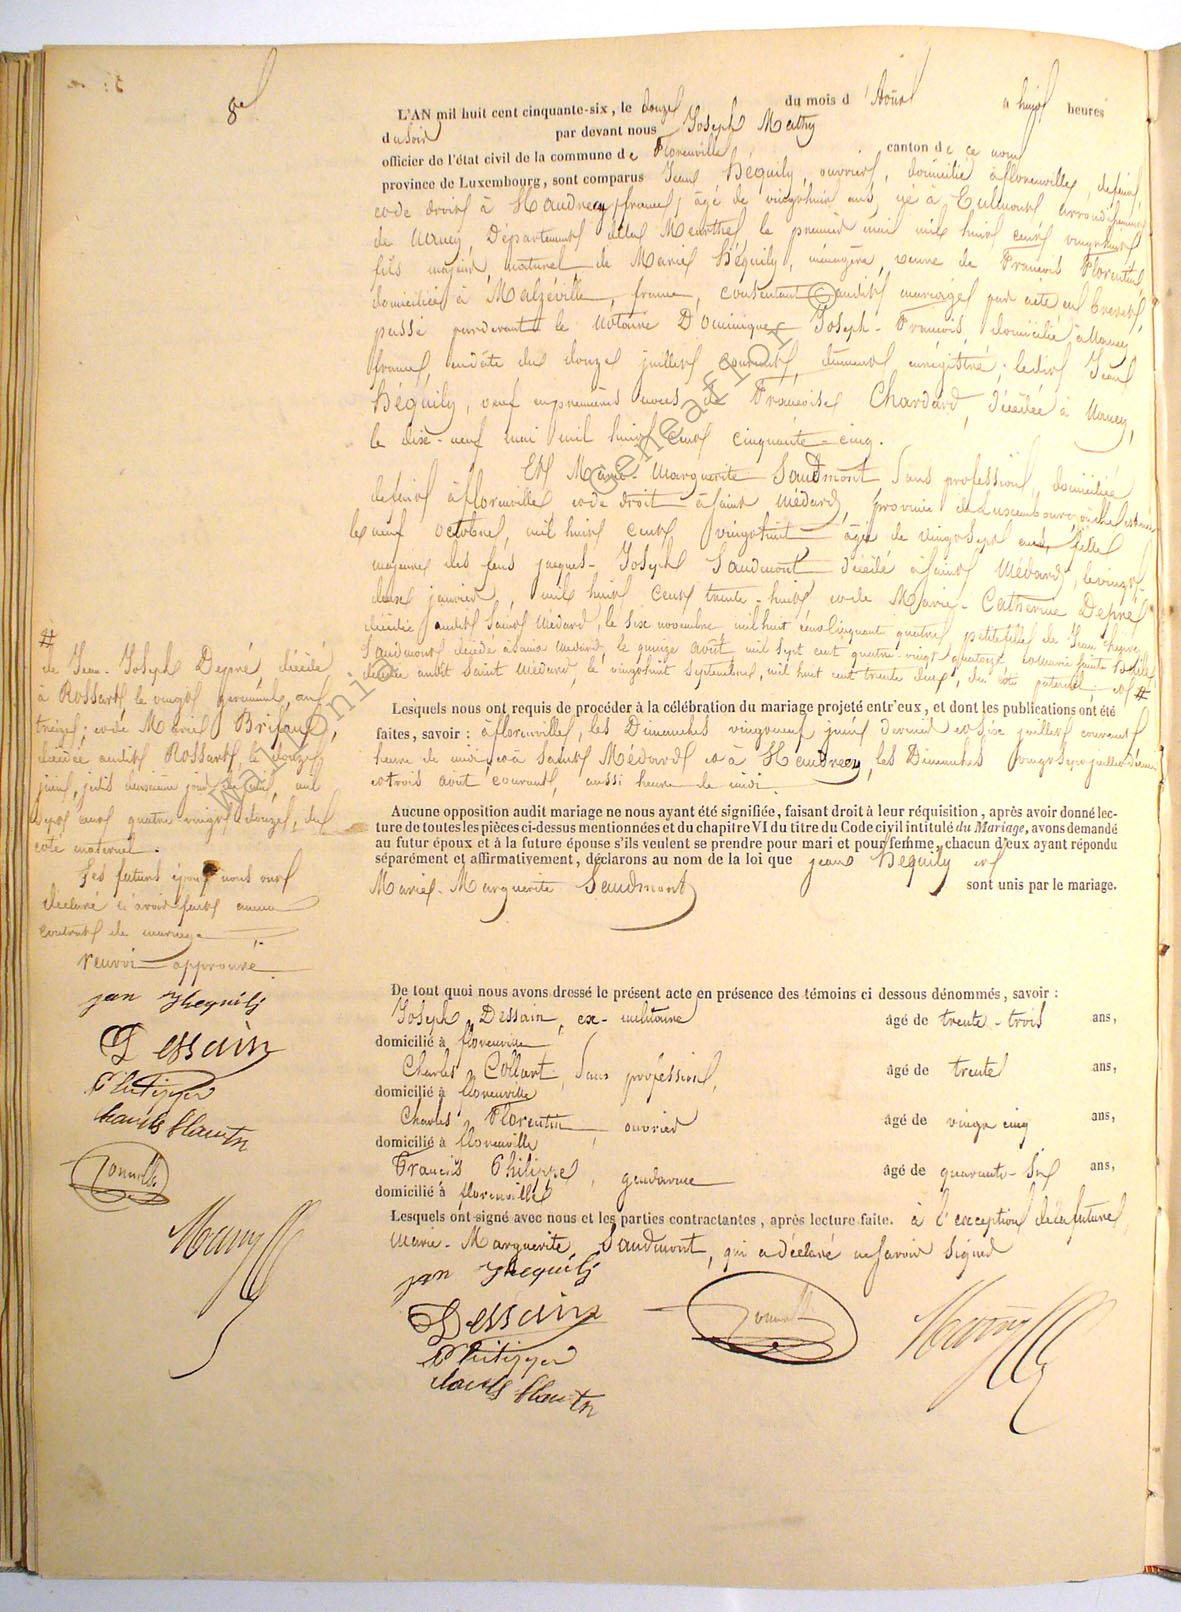 8e
L'AN mil huit cent cinquante-six, le douze du mois d'Août à huit heures
du soir par devant nous Joseph Mathy
officier de l'état civil de la commune de Florenville canton de ce nom
province de Luxembourg, sont comparus Jean Héquily, ouvrier, domicilié à florenville, de fait,
et de droit à Haudrecy, france, âgé de vingt huit ans, né à Eulmont arrondissement
de Nancy, Département de la Meurthe, le premier mai mil huit cent vingt huit
fils majeur, naturel de Marie Héquily, ménagère, veuve de François Florentin
domiciliée à Malzéville, france, consentant audit mariage par acte en brevet,
passé pardevant le Notaire Dominique Joseph-François, domicilié à Nancy
france, en date du douze juillet courant, dûment enrégistré; ledit Jean
Héquily, veuf en premières noces de Françoise Chardard, décédée à Nancy,
le dix-neuf mai mil huit cent cinquante-cinq.
Et Marie-Marguerite Saudmont sans profession, domiciliée
de fait à florenville et de droit à saint Médard, province de Luxembourg, où elle est née
le neuf octobre, mil huit cent vingt huit âgée de vingt sept ans, fille
majeure des feus jacques-Joseph Saudmont décédé à saint Médard, le vingt-
deux janvier, mil huit cent trente-huit et de Marie-Catherine Depré
décédée audit Saint Médard, le six novembre mil huit cent cinquante quatre, petite fille de Jean
Saudmont décédé à Saint Médard, le quinze août mil sept cent quatre-vingt quatorze, et Marie
décédée audit Saint Médard, le vingt huit Septembre, mil huit cent trente deux, du côté paternel et #
#
de Jean-Joseph Depré, décédé
à Rossart le vingt germinal, an
treize; et de Marie Brijaux,
décédée audit Rossart, le douze
juin, jadis deuxième jour de mil
sept cent quatre-vingt douze, du
côté maternel.
Les futurs époux nous ont
déclaré n'avoir fait aucun
contrat de mariage
renvoi approuvé
jan Hequily
Dessain
Philippe
Charles Flauntn
Mathy
Lesquels nous ont requis de procéder à la célébration du mariage projeté entr'eux, et dont les publications ont été
faites, savoir : à florenville, les Dimanches vingt neuf juin dernier et six juillet courant
heure de midi, et à Saint Médard et à Haudrecy, les Dimanches vingt sept juillet dernier
et trois août courant, aussi heure de midi.
Aucune opposition audit mariage ne nous ayant été signifiée, faisant droit à leur réquisition, après avoir donné lec-
ture de toutes les pièces ci-dessus mentionnées et du chapitre VI du titre du Code civil intitulé du Mariage, avons demandé
au futur époux et à la future épouse s'ils veulent se prendre pour mari et pour femme, chacun d'eux ayant répondu
séparément et affirmativement, déclarons au nom de la loi que jean Hequily et
Marie-Marguerite Saudmont sont unis par le mariage.
De tout quoi nous avons dressé le présent acte en présence des témoins ci dessous dénommés, savoir :
Joseph Dessain, ex-militaire âgé de trente-trois ans,
domicilié à florenville
Charles Collart, Sans profession, âgé de trente ans,
domicilié à florenville
Charles Florentin, ouvrier âgé de vingt cinq ans,
domicilié à florenville
François Philippe, gendarme âgé de quarante-six ans,
domicilié à florenville
Lesquels ont signé avec nous et les parties contractantes, après lecture faite. à l'exception de la future
Marie-Marguerite Saudmont, qui a déclaré ne savoir signer
jan Hequily
Dessain
Philippe
Charles Flauntn
Mathy